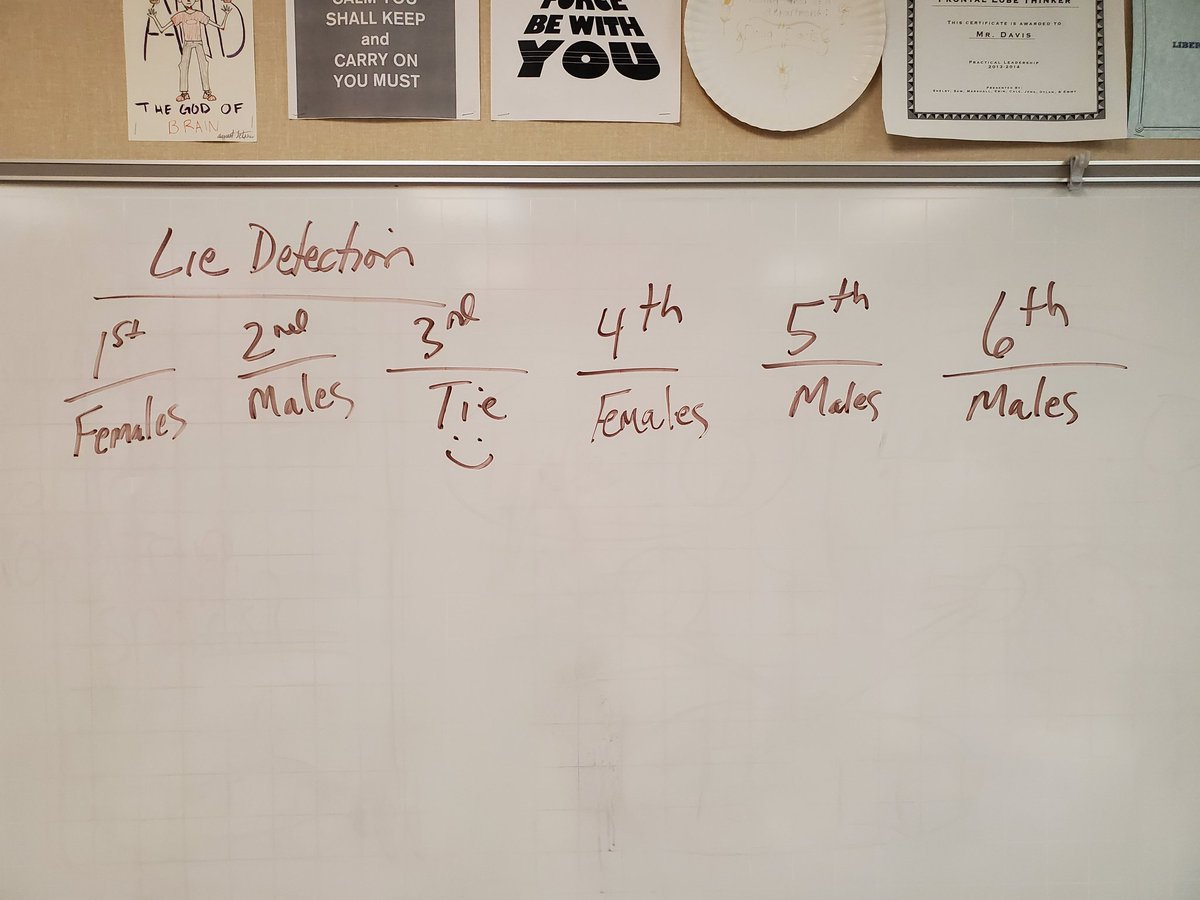 THE GOD OF
BRAIN
CALM YOU
SHALL KEEP
and
CARRY ON
YOU MUST
FORCE
BE WITH
YOU
FRONTAL LOBE THINKER
THIS CERTIFICATE IS AWARDED TO
MR. DAVIS
PRACTICAL LEADERSHIP
2013-2014
PRESENTED BY
LIBER
Lie Detection
1st 2nd 3rd 4th 5th 6th
Females Males Tie Females Males Males